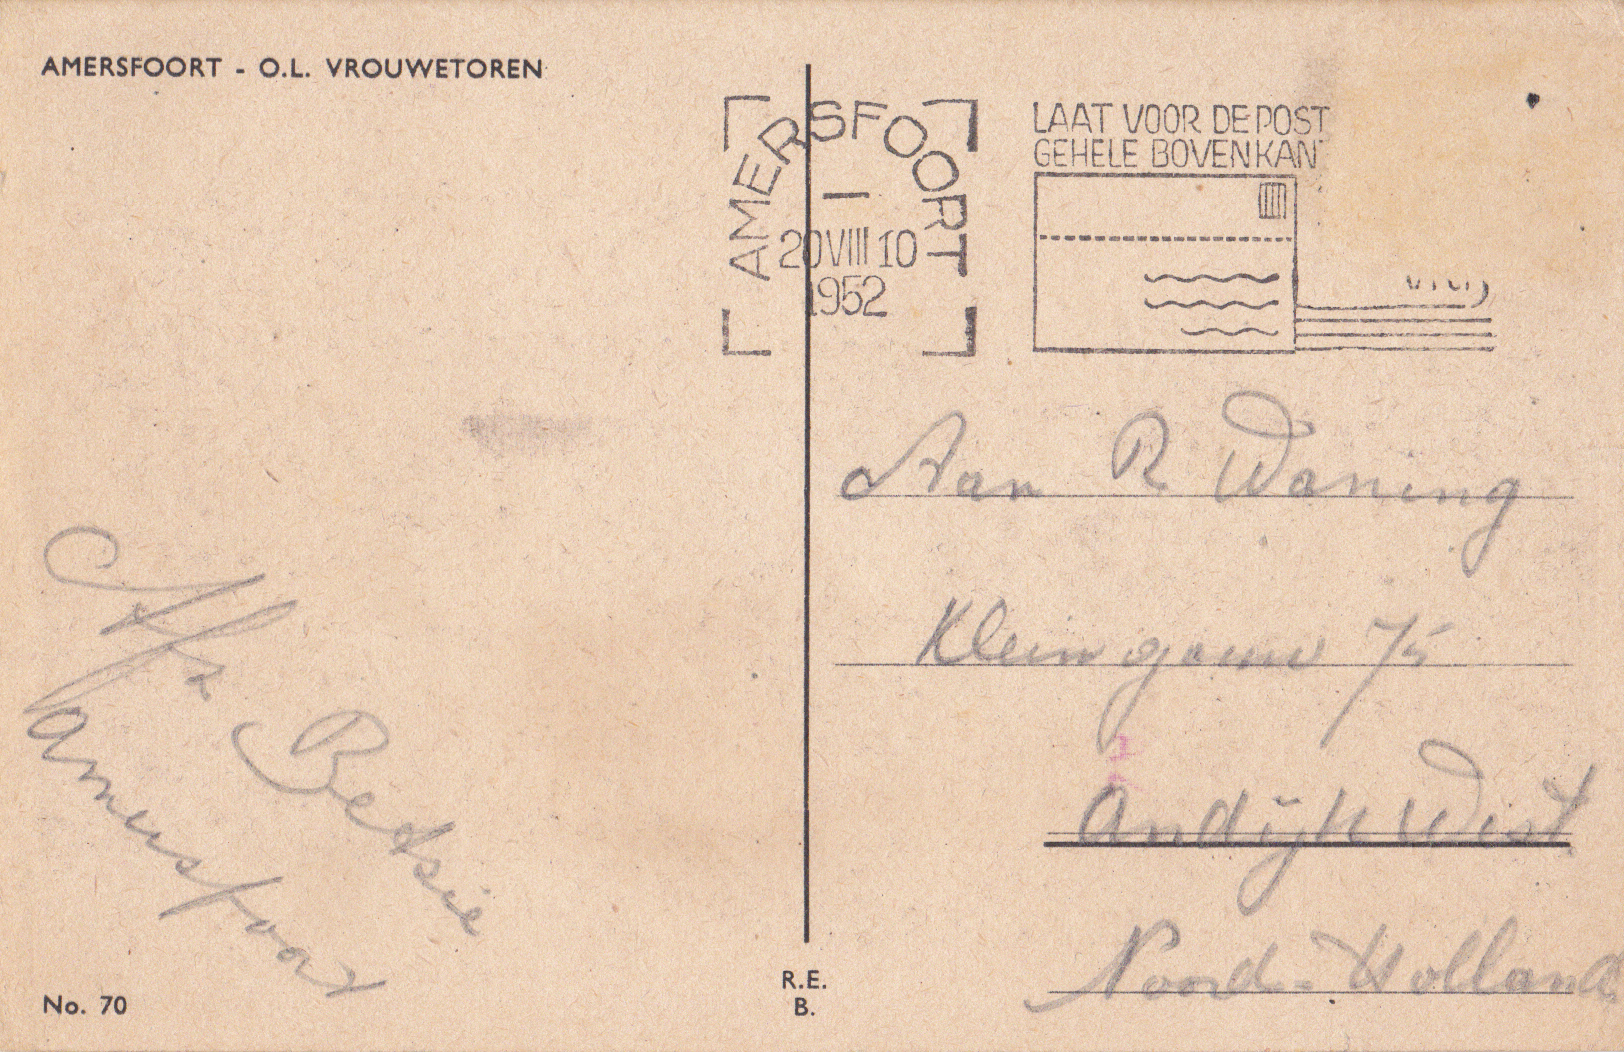 AMERSFOORT - O.L. VROUWETOREN
AMERSFOORT
1
20 VIII 10
1952
LAAT VOOR DE POST
GEHELE BOVENKANT
VRIJ
Aan R Waning
Kleingouw 75
Andijk West
Noord-Holland
Afz
Betsie
Amersfoort
No. 70
R.E.
B.